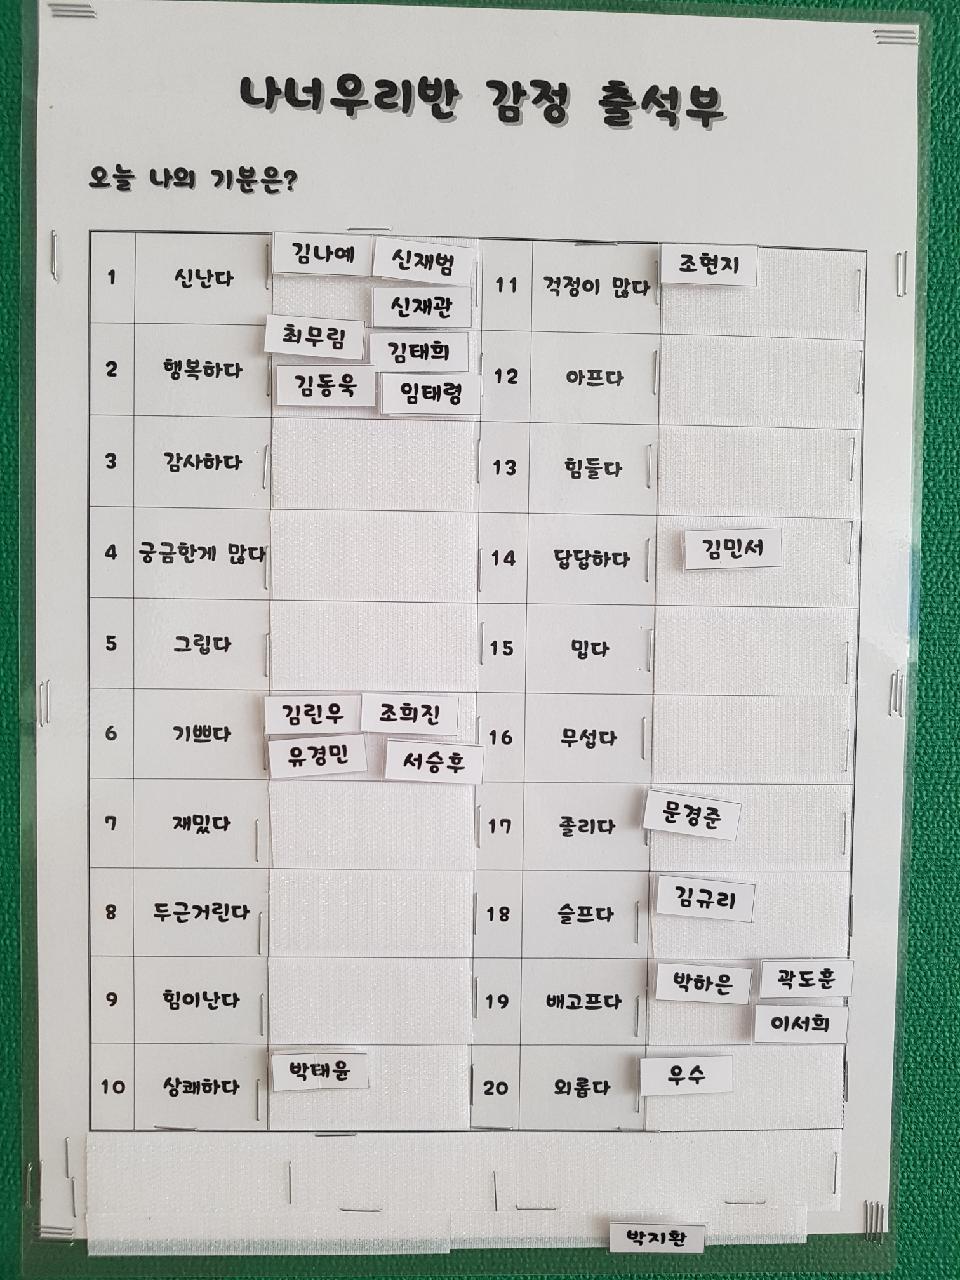 나너우리반 감정 출석부
오늘 나의 기분은?
1 신난다 김나예 신재범 신재관
2 행복하다 최무림 김태희 김동욱 임태령
3 감사하다
4 궁금한게 많다
5 그립다
6 기쁘다 김린우 조희진 유경민 서승후
7 재밌다
8 두근거린다
9 힘이난다
10 상쾌하다 박태윤
11 걱정이 많다 조현지
12 아프다
13 힘들다
14 답답하다 김민서
15 밉다
16 무섭다
17 졸리다 문경준
18 슬프다 김규리
19 배고프다 박하은 곽도훈 이서희
20 외롭다 우수
박지환